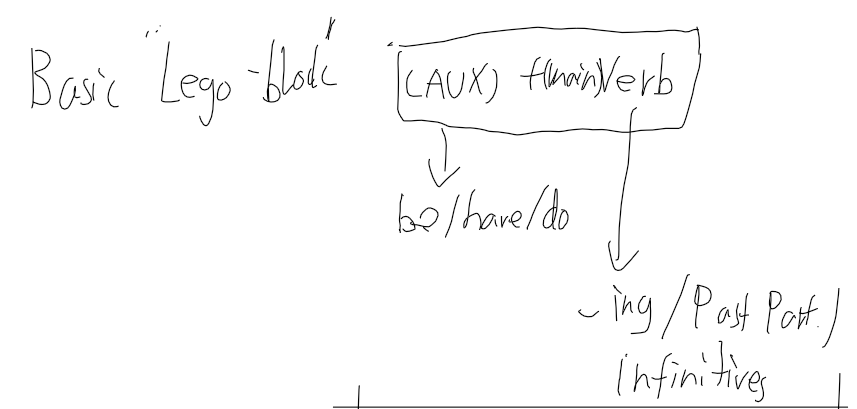 Basic "Lego-block" (AUX) +(main)Verb
be/have/do
-ing/Past Part./
infinitives